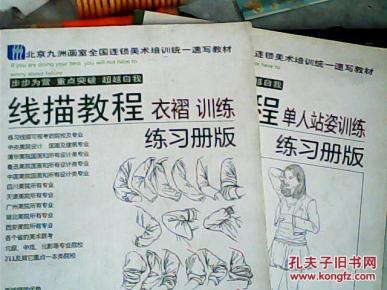 北京九洲画室全国连锁美术培训统一速写教材
If you are doing your best you will not have to
worry about failure
步步为营 重点突破 超越自我
线描教程 衣褶 训练
练习册版
练习线描可报考的院校及专业
中央美院设计 国画及建筑专业
清华美院国画和所有设计类专业
鲁迅美院国画和所有设计类专业
中国美院国画和所有设计类专业
四川美院所有专业
天津美院所有专业
广州美院所有专业
湖北美院所有专业
西安美院所有专业
各个省的美术联考
北服、中戏、北影等专业院校
211及其它重点一本类院校
室全国连锁美术培训统一速写教材
you will not have to
超越自我
程 单人站姿训练
练习册版
孔夫子旧书网